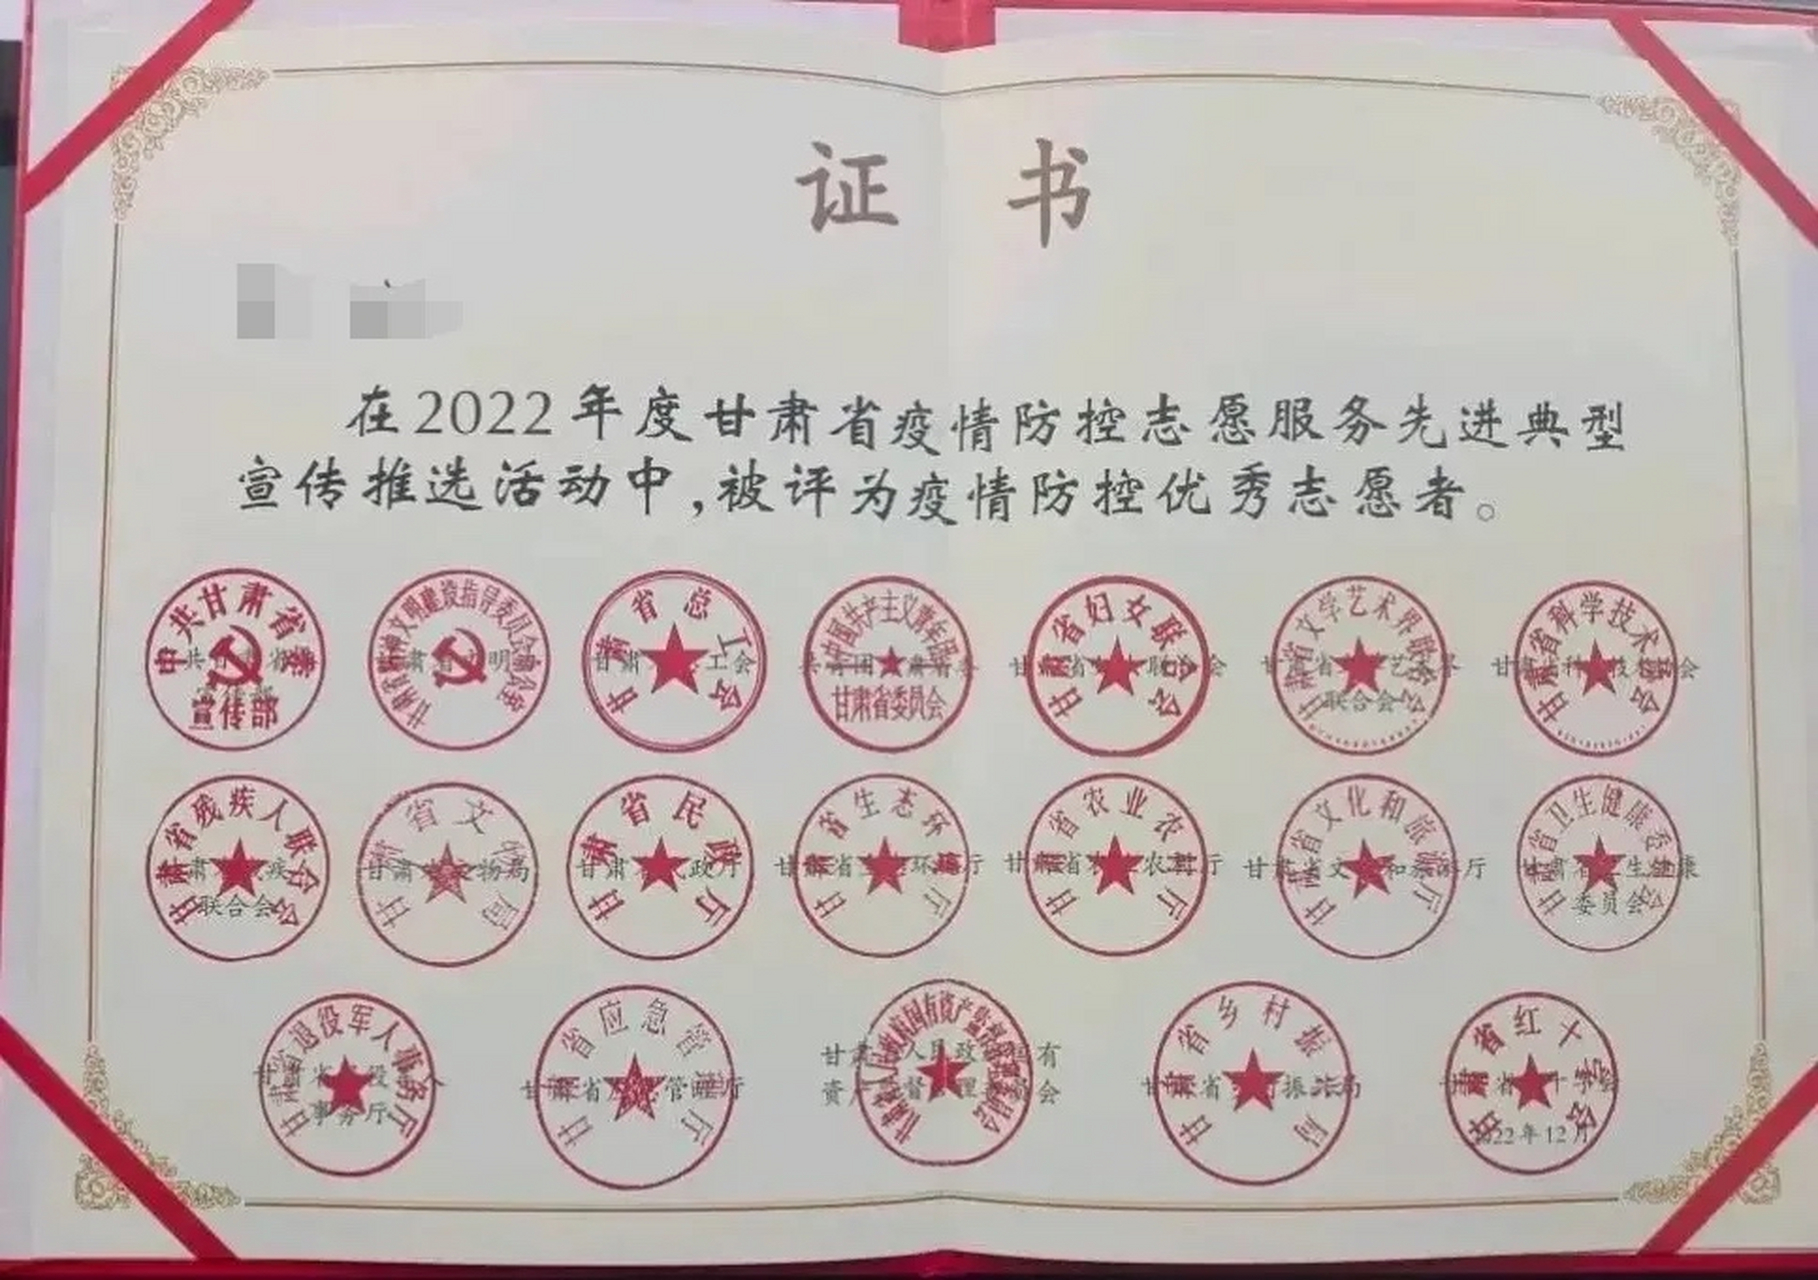 证 书
在2022年度甘肃省疫情防控志愿服务先进典型
宣传推选活动中,被评为疫情防控优秀志愿者。
中共甘肃省委
宣传部
甘肃省精神文明建设指导委员会办公室
甘肃省总工会
中国共产主义青年团
甘肃省委员会
甘肃省妇女联合会
甘肃省文学艺术界联合会
联合会
甘肃省科学技术协会
甘肃省残疾人联合会
联合会
甘肃省文物局
甘肃省民政厅
甘肃省生态环境厅
甘肃省农业农村厅
甘肃省文化和旅游厅
甘肃省卫生健康委员会
委员会
甘肃省退役军人事务厅
事务厅
甘肃省应急管理厅
甘肃省人民政府国有资产监督管理委员会
甘肃省乡村振兴局
甘肃省红十字会
2022年12月